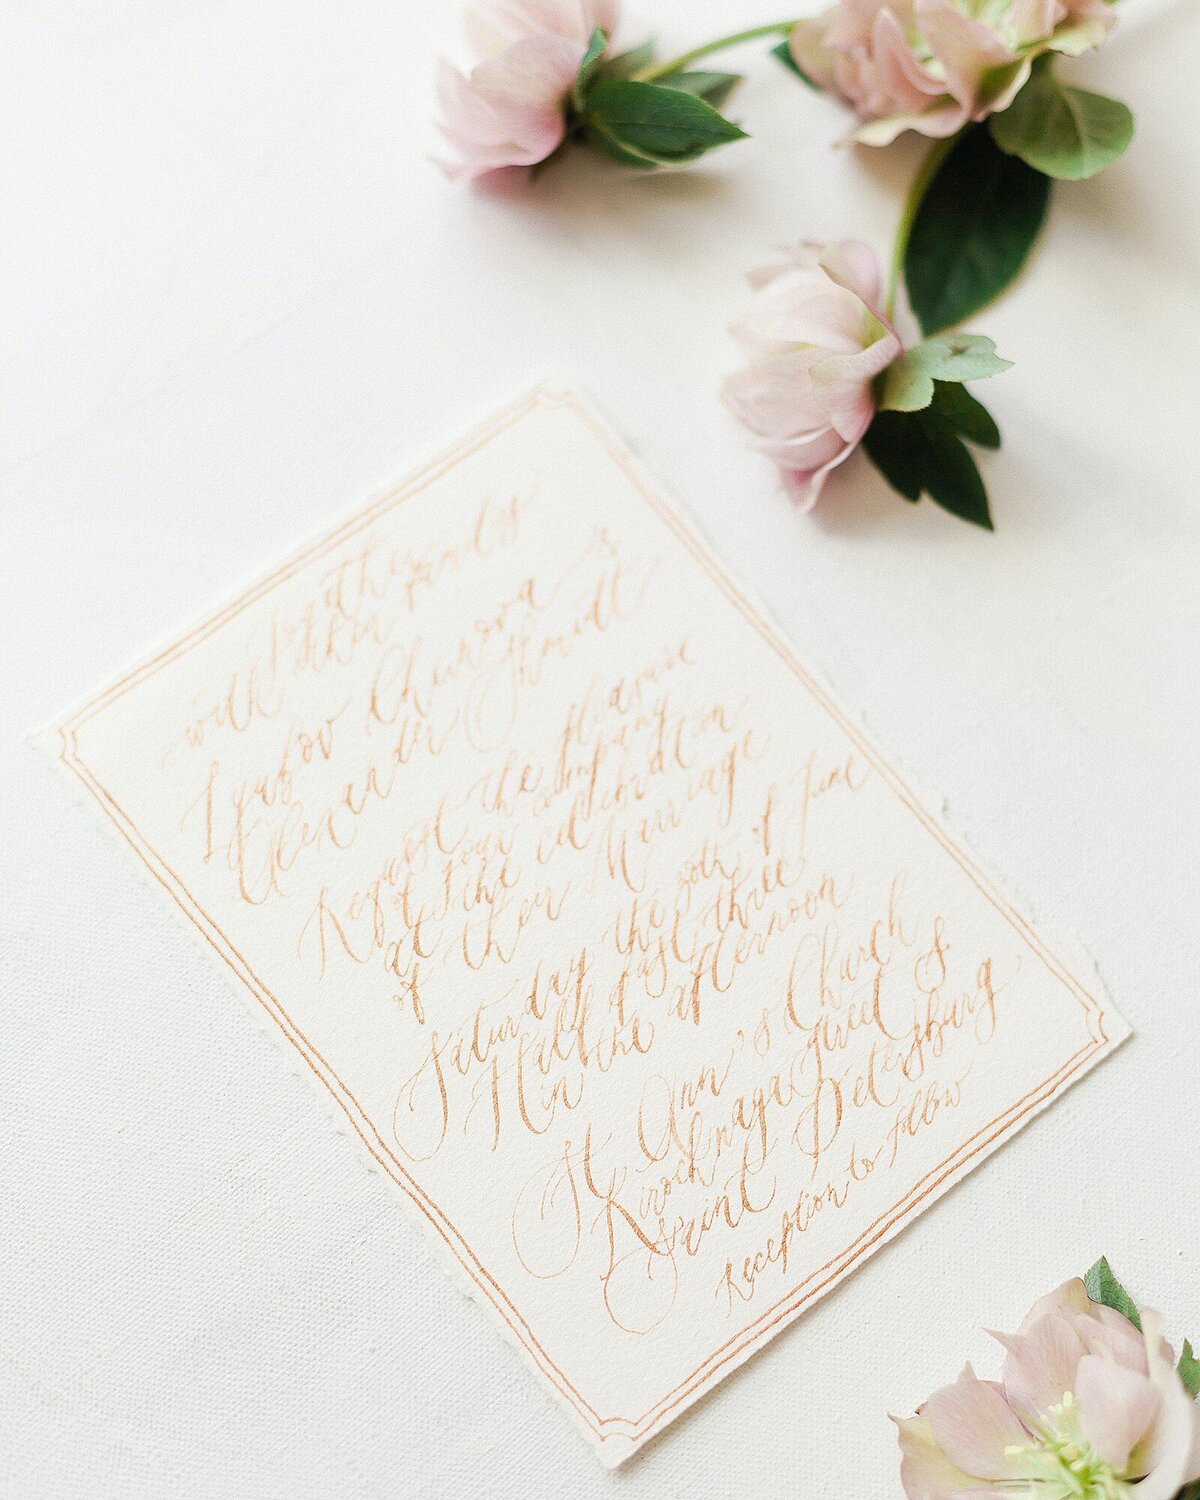 Together
with their parents
Chunova &
Alexander Schmidt
Request the pleasure
of your company
at the celebration
of their Marriage
Saturday the 20th of June
Half past three
in the afternoon
St. Ann's Church
Kirochnaya Street 8
Saint Petersburg
Reception to follow